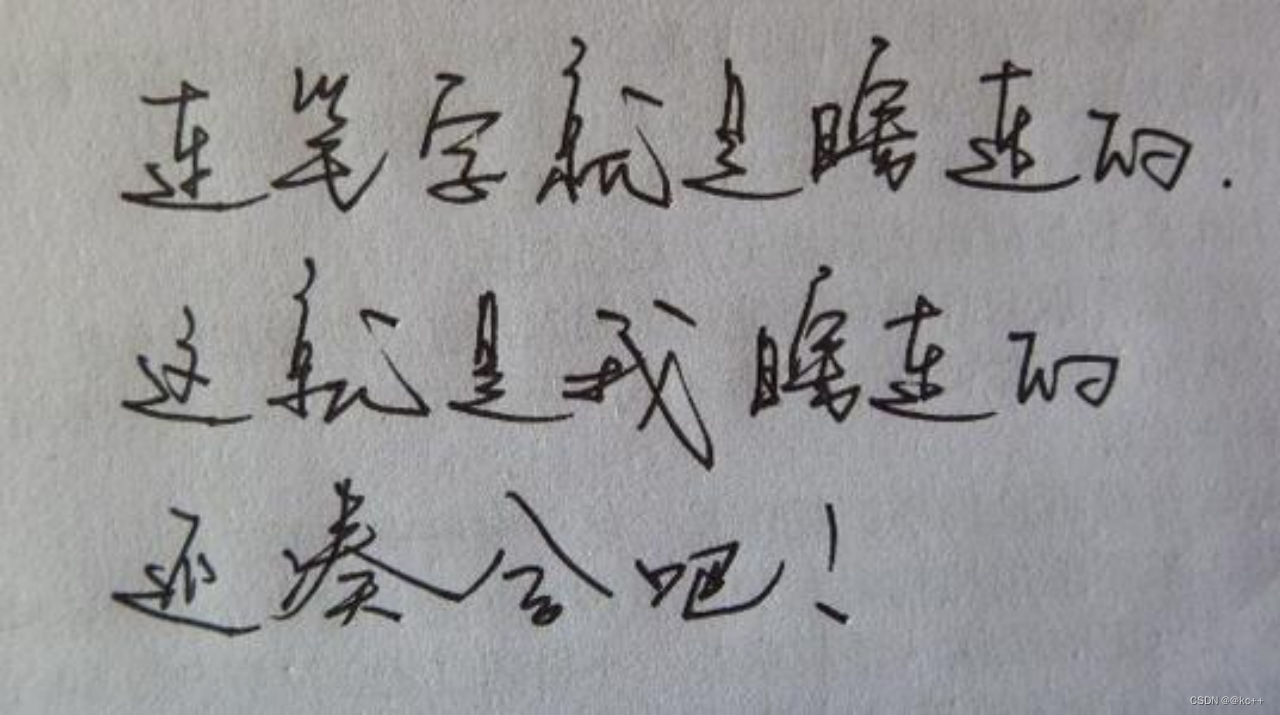 连笔字就是瞎连的.
这就是我瞎连的
还凑合吧！
CSDN @@kc++